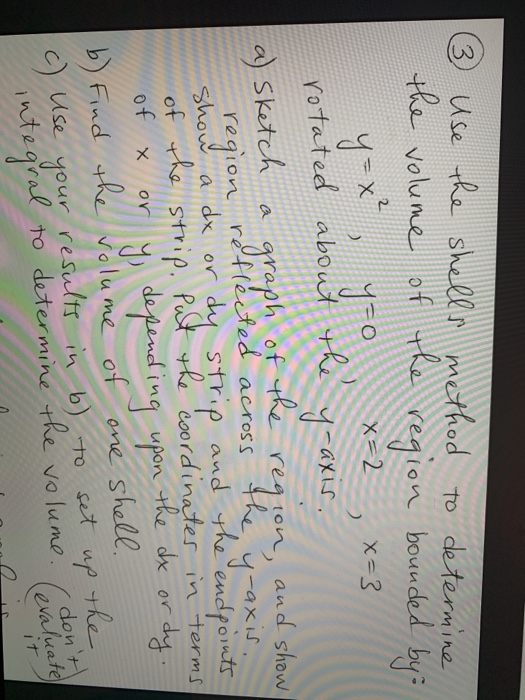 ③ Use the shells method to determine
the volume of the region bounded by:
y=x², y=0, x=2, x=3
rotated about the y-axis.
a) Sketch a graph of the region, and show
region reflected across the y-axis.
show a dx or dy strip and the endpoints
of the strip. Put the coordinates in terms
of x or y, depending upon the dx or dy.
b) Find the volume of one shell.
c) Use your results in b) to set up the
integral to determine the volume. (don't
evaluate
it)